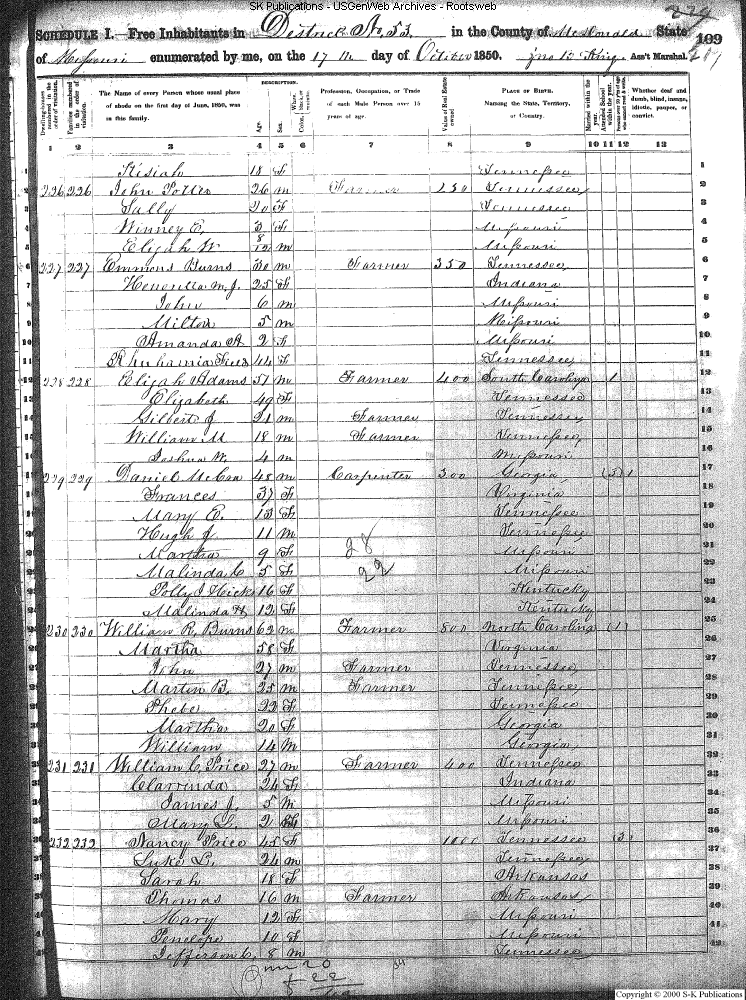 SK Publications - USGenWeb Archives - Rootsweb
229
SCHEDULE I.—Free Inhabitants in District No. 53 in the County of McDonald State 109
of Missouri enumerated by me, on the 17th day of October 1850. Ass't Marshal.
Dwelling-houses numbered in the order of visitation.
Families numbered in the order of visitation.
The Name of every Person whose usual place of abode on the first day of June, 1850, was in this family.
DESCRIPTION.
Age.
Sex.
Profession, Occupation, or Trade of each Male Person over 15 years of age.
Value of Real Estate owned
PLACE OF BIRTH. Naming the State, Territory, or Country.
Married within the year.
Attended School within the year.
Whether deaf and dumb, blind, insane, idiotic, pauper, or convict.
1 2 3 4 5 6 7 8 9 10 11 12 13
Kisiah 18 F Tennessee 1
226 226 John 26 m Farmer 250 Tennessee 2
Sally 20 F Tennessee 3
Winney E. 3 F Missouri 4
Elijah W 8/12 m Missouri 5
227 227 Emmons Burns 30 m Farmer 350 Tennessee 6
Henrietta M. J. 25 F Indiana 7
John 6 m Missouri 8
Milton 5 m Missouri 9
Amanda A 2 F Missouri 10
44 F Tennessee 11
228 228 Elijah Adams 51 m Farmer 400 South Carolina 1 12
Elizabeth 49 F Tennessee 13
Gilbert J 21 m Farmer Tennessee 14
William M 18 m Farmer Tennessee 15
Joshua W. 4 m Missouri 16
229 229 Daniel McCra 48 m Carpenter 300 Georgia (3) 1 17
Frances 37 F Virginia 18
Mary E. 13 F Tennessee 19
Hugh J 11 M Tennessee 20
Martha 9 F Missouri 21
Malinda C 5 F Missouri 22
Polly J Hicks 16 F Kentucky 23
Malinda H 12 F Kentucky 24
28
22
230 230 William R. Burns 62 m Farmer 800 North Carolina (1) 25
Martha 58 F Virginia 26
John 27 m Farmer Tennessee 27
Martin B. 25 m Farmer Tennessee 28
Phebe 22 F Tennessee 29
Martha 20 F Georgia 30
William 14 M Georgia 31
231 231 William C Price 27 m Farmer 400 Tennessee 32
Clarrinda 24 F Indiana 33
James J. 5 m Missouri 34
Mary 2 F Missouri 35
232 232 Nancy Price 45 F 1000 Tennessee (3) 36
Luke L. 24 m Tennessee 37
Sarah 18 F Arkansas 38
Thomas 16 m Farmer Arkansas 39
Mary 12 F Missouri 40
Penelope 10 F Missouri 41
Jefferson C. 8 m Tennessee 42
20
22
Copyright © 2000 S-K Publications